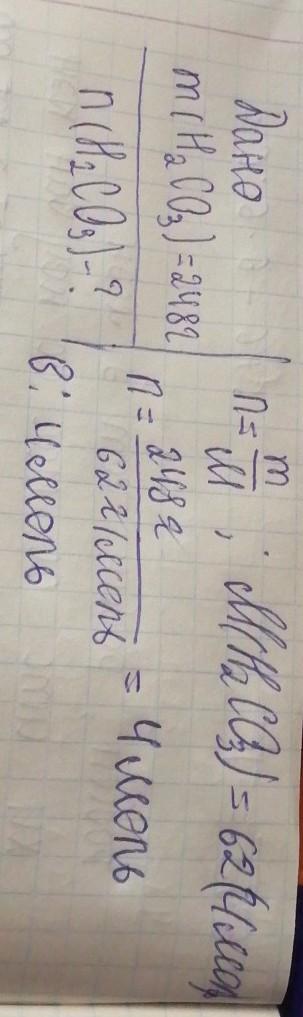 Дано
m(H₂CO₃)=248г
n(H₂CO₃)-?
n = m/M ; M(H₂CO₃) = 62
n = 248г / 62г/моль = 4моль
В: 4моль